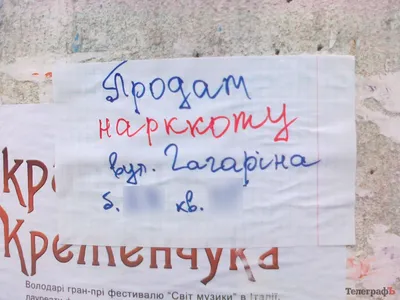 Продам
наркоту
вул. Гагаріна
б. кв.
кра
Кременчука
Володарі гран-прі фестивалю "Світ музики" в Італії,
ТелеграфЪ